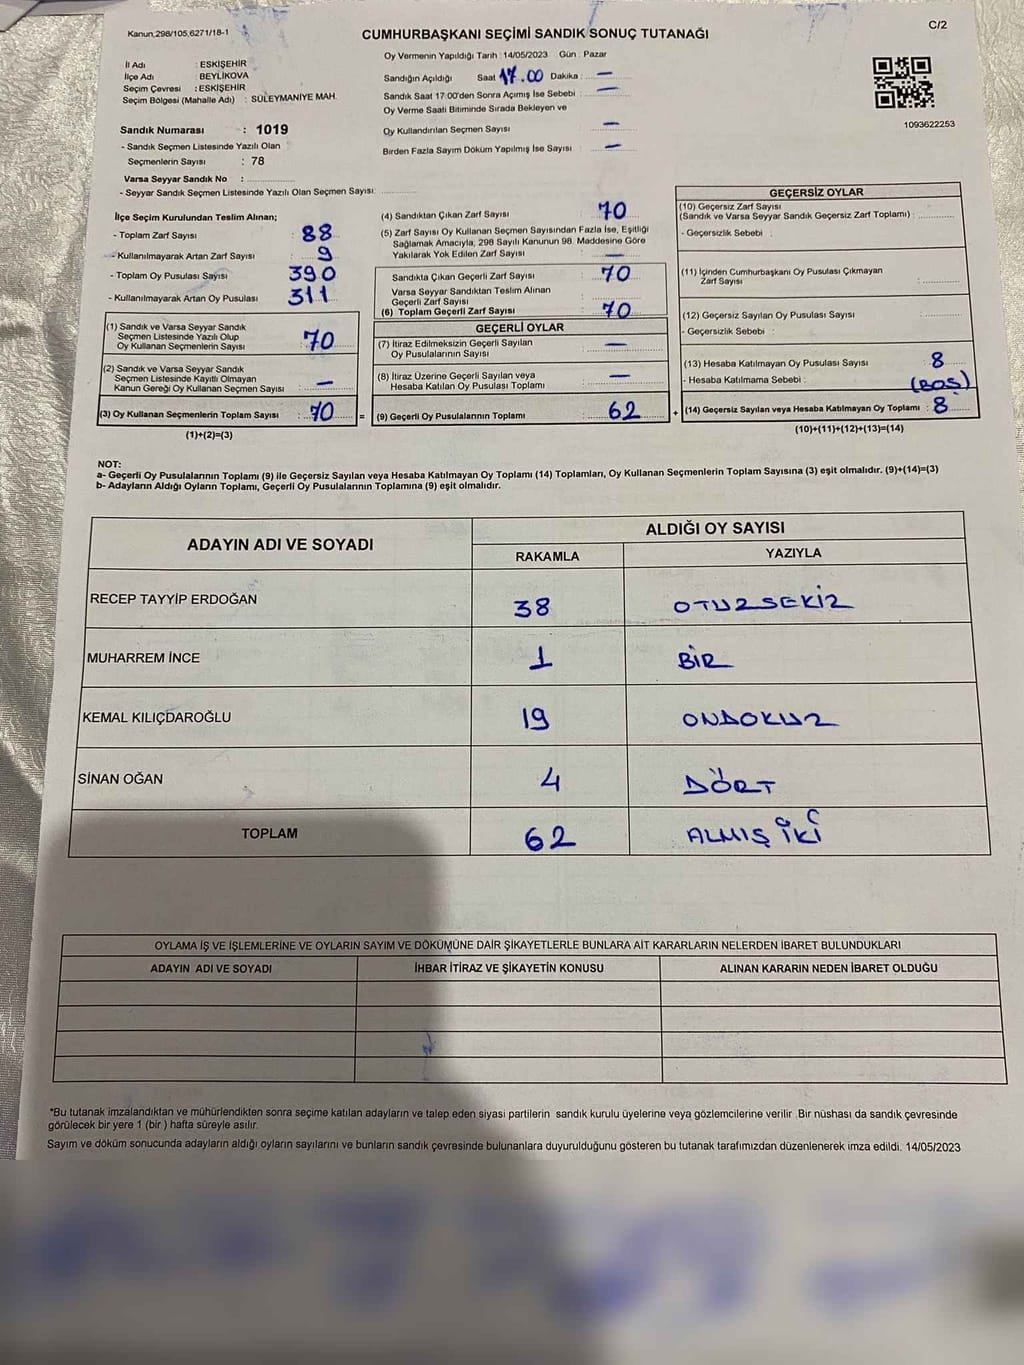 Kanun,298/105,6271/18-1
CUMHURBAŞKANI SEÇİMİ SANDIK SONUÇ TUTANAĞI
C/2
İl Adı : ESKİŞEHİR
İlçe Adı : BEYLİKOVA
Seçim Çevresi : ESKİŞEHİR
Seçim Bölgesi (Mahalle Adı) : SÜLEYMANİYE MAH.
Oy Vermenin Yapıldığı Tarih : 14/05/2023 Gün : Pazar
Sandığın Açıldığı Saat 17.00 Dakika : —
Sandık Saat 17:00'den Sonra Açımış İse Sebebi : —
Oy Verme Saati Bitiminde Sırada Bekleyen ve
Oy Kullandırılan Seçmen Sayısı —
Birden Fazla Sayım Döküm Yapılmış İse Sayısı : —
1093622253
Sandık Numarası : 1019
- Sandık Seçmen Listesinde Yazılı Olan
Seçmenlerin Sayısı : 78
Varsa Seyyar Sandık No :
- Seyyar Sandık Seçmen Listesinde Yazılı Olan Seçmen Sayısı:
İlçe Seçim Kurulundan Teslim Alınan;
- Toplam Zarf Sayısı : 88
- Kullanılmayarak Artan Zarf Sayısı : 9
- Toplam Oy Pusulası Sayısı : 390
- Kullanılmayarak Artan Oy Pusulası : 311
(1) Sandık ve Varsa Seyyar Sandık
Seçmen Listesinde Yazılı Olup
Oy Kullanan Seçmenlerin Sayısı : 70
(2) Sandık ve Varsa Seyyar Sandık
Seçmen Listesinde Kayıtlı Olmayan
Kanun Gereği Oy Kullanan Seçmen Sayısı : —
(3) Oy Kullanan Seçmenlerin Toplam Sayısı : 70 =
(1)+(2)=(3)
(4) Sandıktan Çıkan Zarf Sayısı : 70
(5) Zarf Sayısı Oy Kullanan Seçmen Sayısından Fazla İse, Eşitliği
Sağlamak Amacıyla, 298 Sayılı Kanunun 98. Maddesine Göre
Yakılarak Yok Edilen Zarf Sayısı : —
Sandıkta Çıkan Geçerli Zarf Sayısı : 70
Varsa Seyyar Sandıktan Teslim Alınan
Geçerli Zarf Sayısı
(6) Toplam Geçerli Zarf Sayısı : 70
GEÇERLİ OYLAR
(7) İtiraz Edilmeksizin Geçerli Sayılan
Oy Pusulalarının Sayısı : —
(8) İtiraz Üzerine Geçerli Sayılan veya
Hesaba Katılan Oy Pusulası Toplamı : —
(9) Geçerli Oy Pusulalarının Toplamı : 62 +
GEÇERSİZ OYLAR
(10) Geçersiz Zarf Sayısı
(Sandık ve Varsa Seyyar Sandık Geçersiz Zarf Toplamı) :
- Geçersizlik Sebebi :
(11) İçinden Cumhurbaşkanı Oy Pusulası Çıkmayan
Zarf Sayısı :
(12) Geçersiz Sayılan Oy Pusulası Sayısı :
- Geçersizlik Sebebi :
(13) Hesaba Katılmayan Oy Pusulası Sayısı : 8
- Hesaba Katılmama Sebebi : (BOŞ)
(14) Geçersiz Sayılan veya Hesaba Katılmayan Oy Toplamı : 8
(10)+(11)+(12)+(13)=(14)
NOT:
a- Geçerli Oy Pusulalarının Toplamı (9) ile Geçersiz Sayılan veya Hesaba Katılmayan Oy Toplamı (14) Toplamları, Oy Kullanan Seçmenlerin Toplam Sayısına (3) eşit olmalıdır. (9)+(14)=(3)
b- Adayların Aldığı Oyların Toplamı, Geçerli Oy Pusulalarının Toplamına (9) eşit olmalıdır.
ADAYIN ADI VE SOYADI
ALDIĞI OY SAYISI
RAKAMLA YAZIYLA
RECEP TAYYİP ERDOĞAN 38 OTUZSEKİZ
MUHARREM İNCE 1 BİR
KEMAL KILIÇDAROĞLU 19 ONDOKUZ
SİNAN OĞAN 4 DÖRT
TOPLAM 62 ALMIŞ İKİ
OYLAMA İŞ VE İŞLEMLERİNE VE OYLARIN SAYIM VE DÖKÜMÜNE DAİR ŞİKAYETLERLE BUNLARA AİT KARARLARIN NELERDEN İBARET BULUNDUKLARI
ADAYIN ADI VE SOYADI İHBAR İTİRAZ VE ŞİKAYETİN KONUSU ALINAN KARARIN NEDEN İBARET OLDUĞU
*Bu tutanak imzalandıktan ve mühürlendikten sonra seçime katılan adayların ve talep eden siyasi partilerin sandık kurulu üyelerine veya gözlemcilerine verilir .Bir nüshası da sandık çevresinde
görülecek bir yere 1 (bir ) hafta süreyle asılır.
Sayım ve döküm sonucunda adayların aldığı oyların sayılarını ve bunların sandık çevresinde bulunanlara duyurulduğunu gösteren bu tutanak tarafımızdan düzenlenerek imza edildi. 14/05/2023